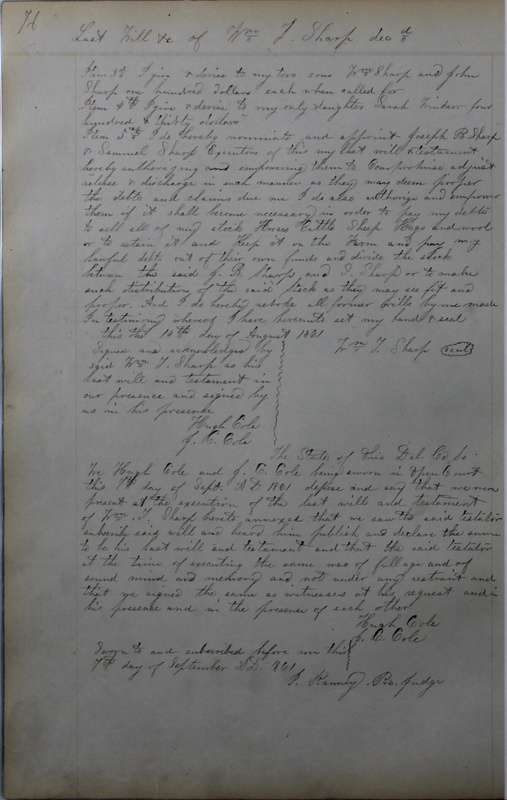 76
Last Will &c of Wm T. Sharp decd
Item 3d I give & devise to my two sons Wm Sharp and John
Sharp one hundred dollars each when called for
Item 4th I give & devise to my only daughter Sarah Windsor four
hundred & thirty dollars
Item 5th I do hereby nominate and appoint Joseph B Sharp
& Samuel Sharp Executors of this my last will & testament
hereby authorizing and empowering them to Compromise adjust
release & discharge in such manner as they may deem proper
the debts and claims due me I do also authorize and empower
them if it shall become necessary in order to pay my debts
to sell all of my stock Horses Cattle Sheep Hogs and wool
or to retain it and Keep it on the Farm and pay my
lawful debts out of their own funds and divide the stock
between the said J. B Sharp and S. Sharp or to make
such distribution of the said stock as they may see fit and
proper. And I do hereby revoke all former wills by me made
In testimony whereof I have hereunto set my hand & seal
this the 14th day of August 1861
Wm T. Sharp (seal)
Signed and acknowledged by
said Wm T. Sharp as his
last will and testament in
our presence and signed by
us in his presence
Hugh Cole
J. C. Cole
The State of Ohio Del. Co. ss.
We Hugh Cole and J. C. Cole being sworn in Open Court
this 7th day of Sept. A.D 1861 depose and say that we were
present at the execution of the last will and testament
of Wm. T. Sharp hereto annexed that we saw the said testator
subscribe said will and heard him publish and declare the same
to be his last will and testament and that the said testator
at the time of executing the same was of full age and of
sound mind and memory and not under any restraint and
that we signed the same as witnesses at his request and in
his presence and in the presence of each other
Hugh Cole
J. C. Cole
Sworn to and subscribed before me this
7th day of September A.D. 1861
P. Ranney. Pro. Judge